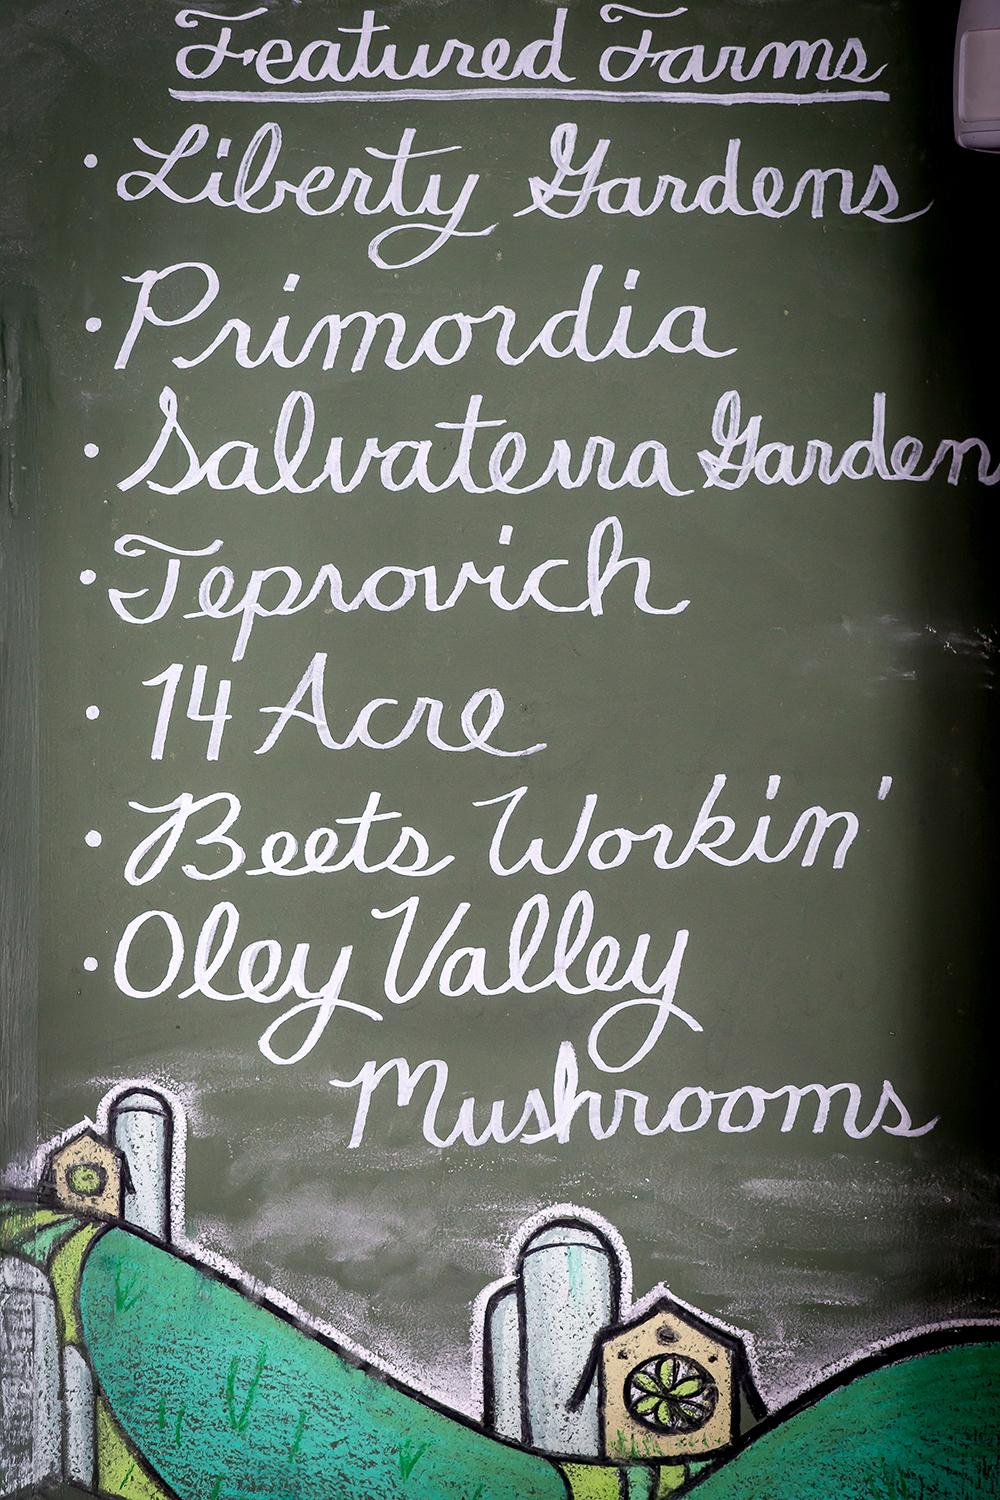 Featured Farms
• Liberty Gardens
• Primordia
• Salvaterra Garden
• Teprovich
• 14 Acre
• Beets Workin'
• Oley Valley
Mushrooms